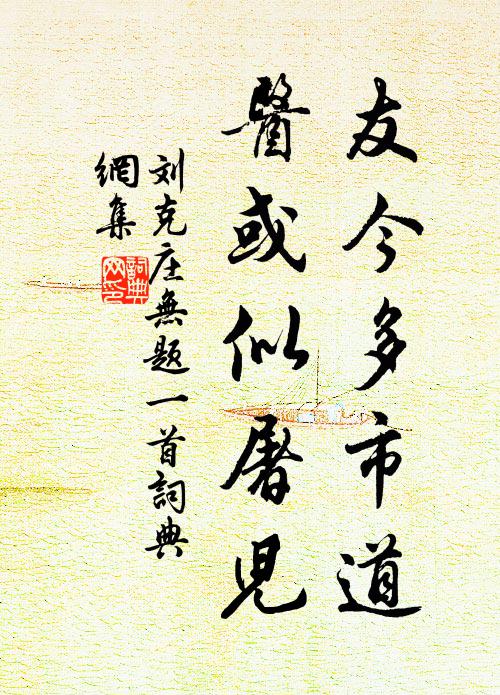 友今多市道
醫或似屠児
刘克庄無题一首詞典
網集
詞典网印